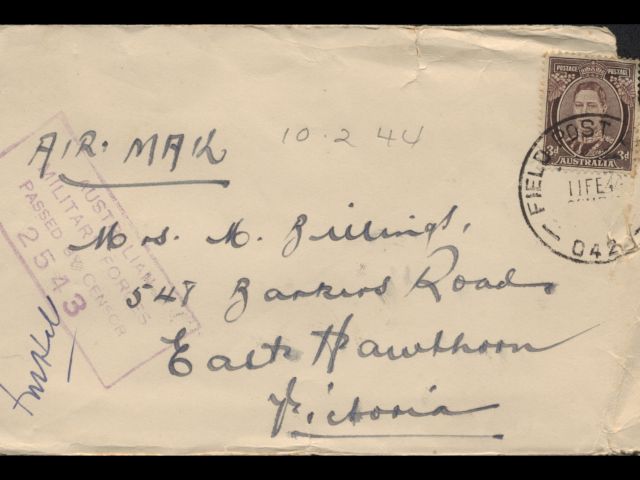 POSTAGE POSTAGE
3d 3d
AUSTRALIA
FIELD POST
11 FE 4
042
10.2 44
AIR. MAIL
AUSTRALIAN
MILITARY FORCES
PASSED BY CENSOR
2543
Mrs. M. Billings,
548 Barkers Road,
East Hawthorn
Victoria